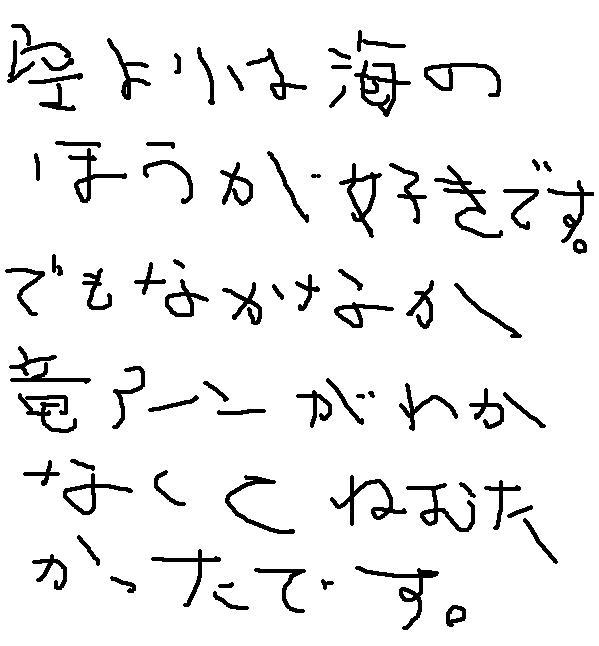 空よりは海の
ほうが好きです。
でもなかなか
竜アーンがわか
なくてねむた
かったです。